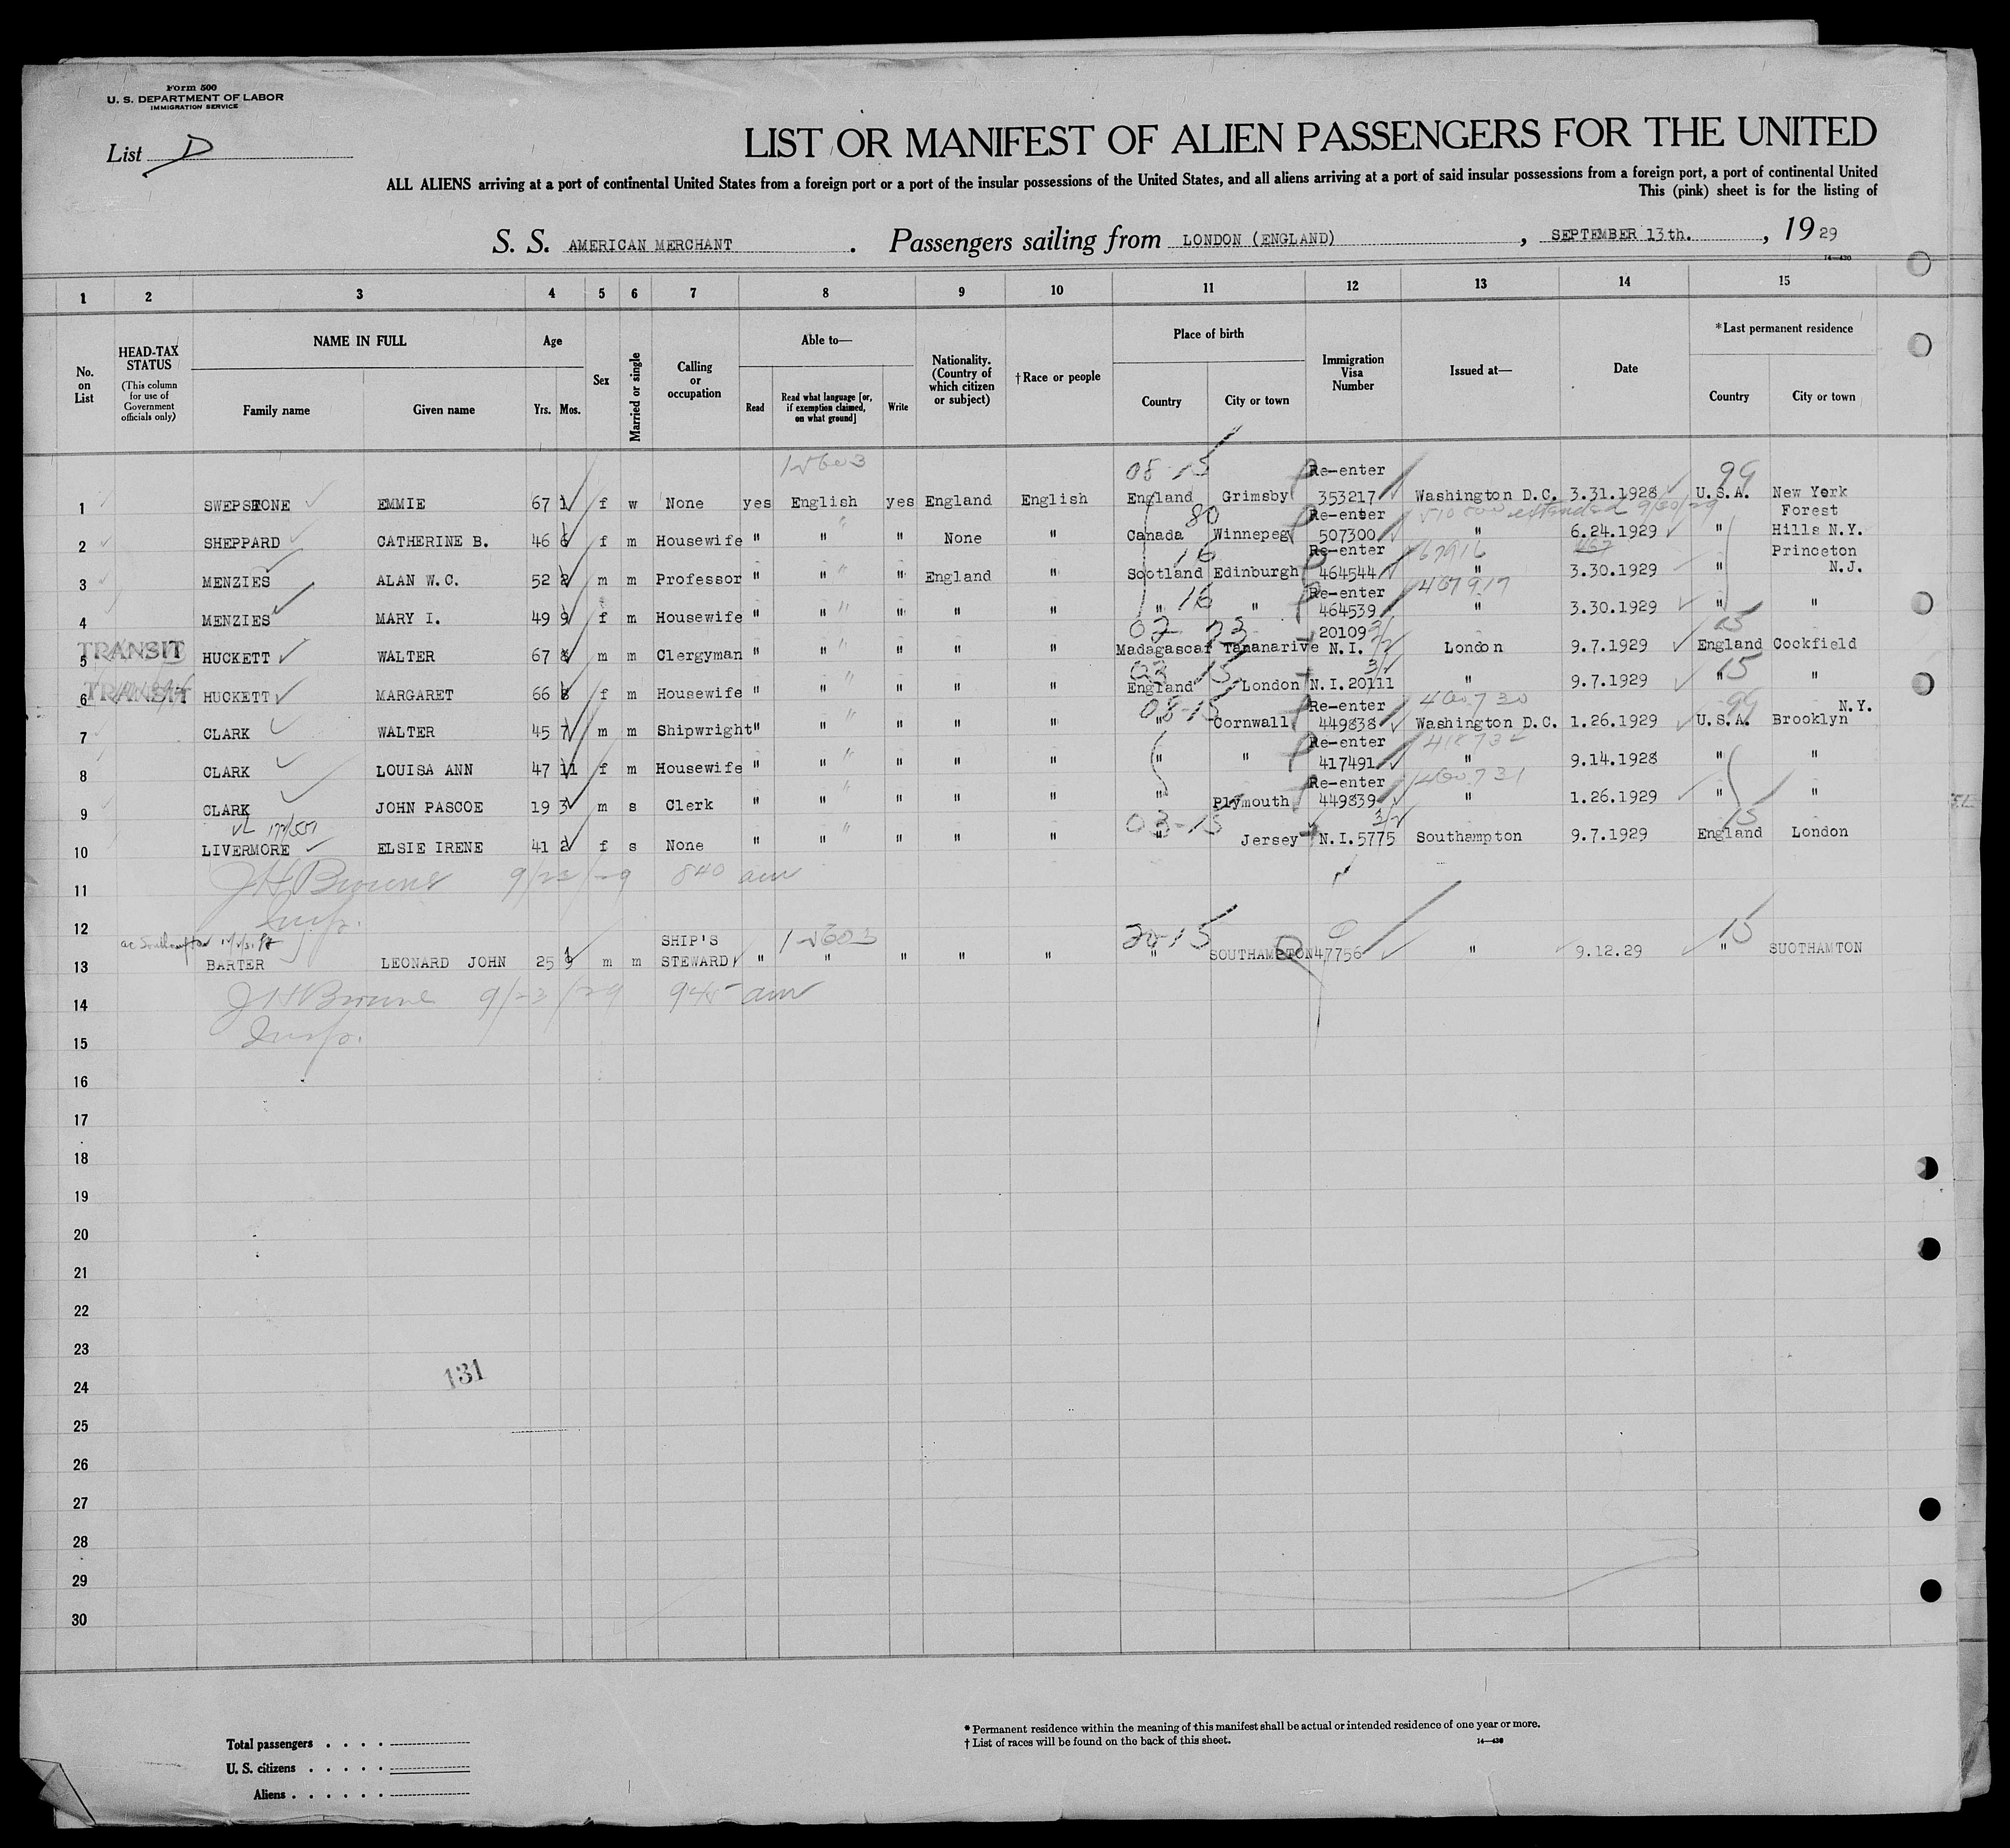 Form 500
U. S. DEPARTMENT OF LABOR
IMMIGRATION SERVICE
List D
LIST OR MANIFEST OF ALIEN PASSENGERS FOR THE UNITED
ALL ALIENS arriving at a port of continental United States from a foreign port or a port of the insular possessions of the United States, and all aliens arriving at a port of said insular possessions from a foreign port, a port of continental United
This (pink) sheet is for the listing of
S. S. AMERICAN MERCHANT . Passengers sailing from LONDON (ENGLAND) , SEPTEMBER 13th. , 19 29
14—430
1 2 3 4 5 6 7 8 9 10 11 12 13 14 15
No. on List
HEAD-TAX STATUS (This column for use of Government officials only)
NAME IN FULL Family name Given name
Age Yrs. Mos.
Sex
Married or single
Calling or occupation
Able to— Read Read what language [or, if exemption claimed, on what ground] Write
Nationality. (Country of which citizen or subject)
† Race or people
Place of birth Country City or town
Immigration Visa Number
Issued at—
Date
* Last permanent residence Country City or town
08-15 Re-enter 99
1 SWEPSTONE EMMIE 67 1 f w None yes English yes England English England Grimsby 353217 Washington D.C. 3.31.1928 U.S.A. New York
80 Re-enter extended 9/30/29 Forest
2 SHEPPARD CATHERINE B. 46 6 f m Housewife " " " None " Canada Winnepeg 507300 " 6.24.1929 " Hills N.Y.
16 Re-enter Princeton
3 MENZIES ALAN W.C. 52 2 m m Professor " " " England " Scotland Edinburgh 464544 " 3.30.1929 " N.J.
16 Re-enter 467917
4 MENZIES MARY I. 49 9 f m Housewife " " " " " " " 464539 " 3.30.1929 " "
TRANSIT 20109 15
5 HUCKETT WALTER 67 8 m m Clergyman " " " " " Madagascar Tananarive N.I. London 9.7.1929 England Cockfield
TRANSIT 15
6 HUCKETT MARGARET 66 8 f m Housewife " " " " " England London N.I. 20111 " 9.7.1929 " "
08-15 Re-enter 400730 99 N.Y.
7 CLARK WALTER 45 7 m m Shipwright " " " " " " Cornwall 449838 Washington D.C. 1.26.1929 U.S.A. Brooklyn
Re-enter
8 CLARK LOUISA ANN 47 11 f m Housewife " " " " " " " 417491 " 9.14.1928 " "
Re-enter 400731
9 CLARK JOHN PASCOE 19 3 m s Clerk " " " " " " Plymouth 449839 " 1.26.1929 " "
03-15 15
10 LIVERMORE ELSIE IRENE 41 2 f s None " " " " " " Jersey N.I. 5775 Southampton 9.7.1929 England London
11 JH Browne 9/23/29 840 am
12 Insp.
SHIP'S 15
13 BARTER LEONARD JOHN 25 9 m m STEWARD " " " " " " SOUTHAMPTON 47756 " 9.12.29 " SUOTHAMTON
14 JH Browne 9/23/29 945 am
15 Insp.
16
17
18
19
20
21
22
23
131
24
25
26
27
28
29
30
Total passengers
U. S. citizens
Aliens
* Permanent residence within the meaning of this manifest shall be actual or intended residence of one year or more.
† List of races will be found on the back of this sheet.
14—430